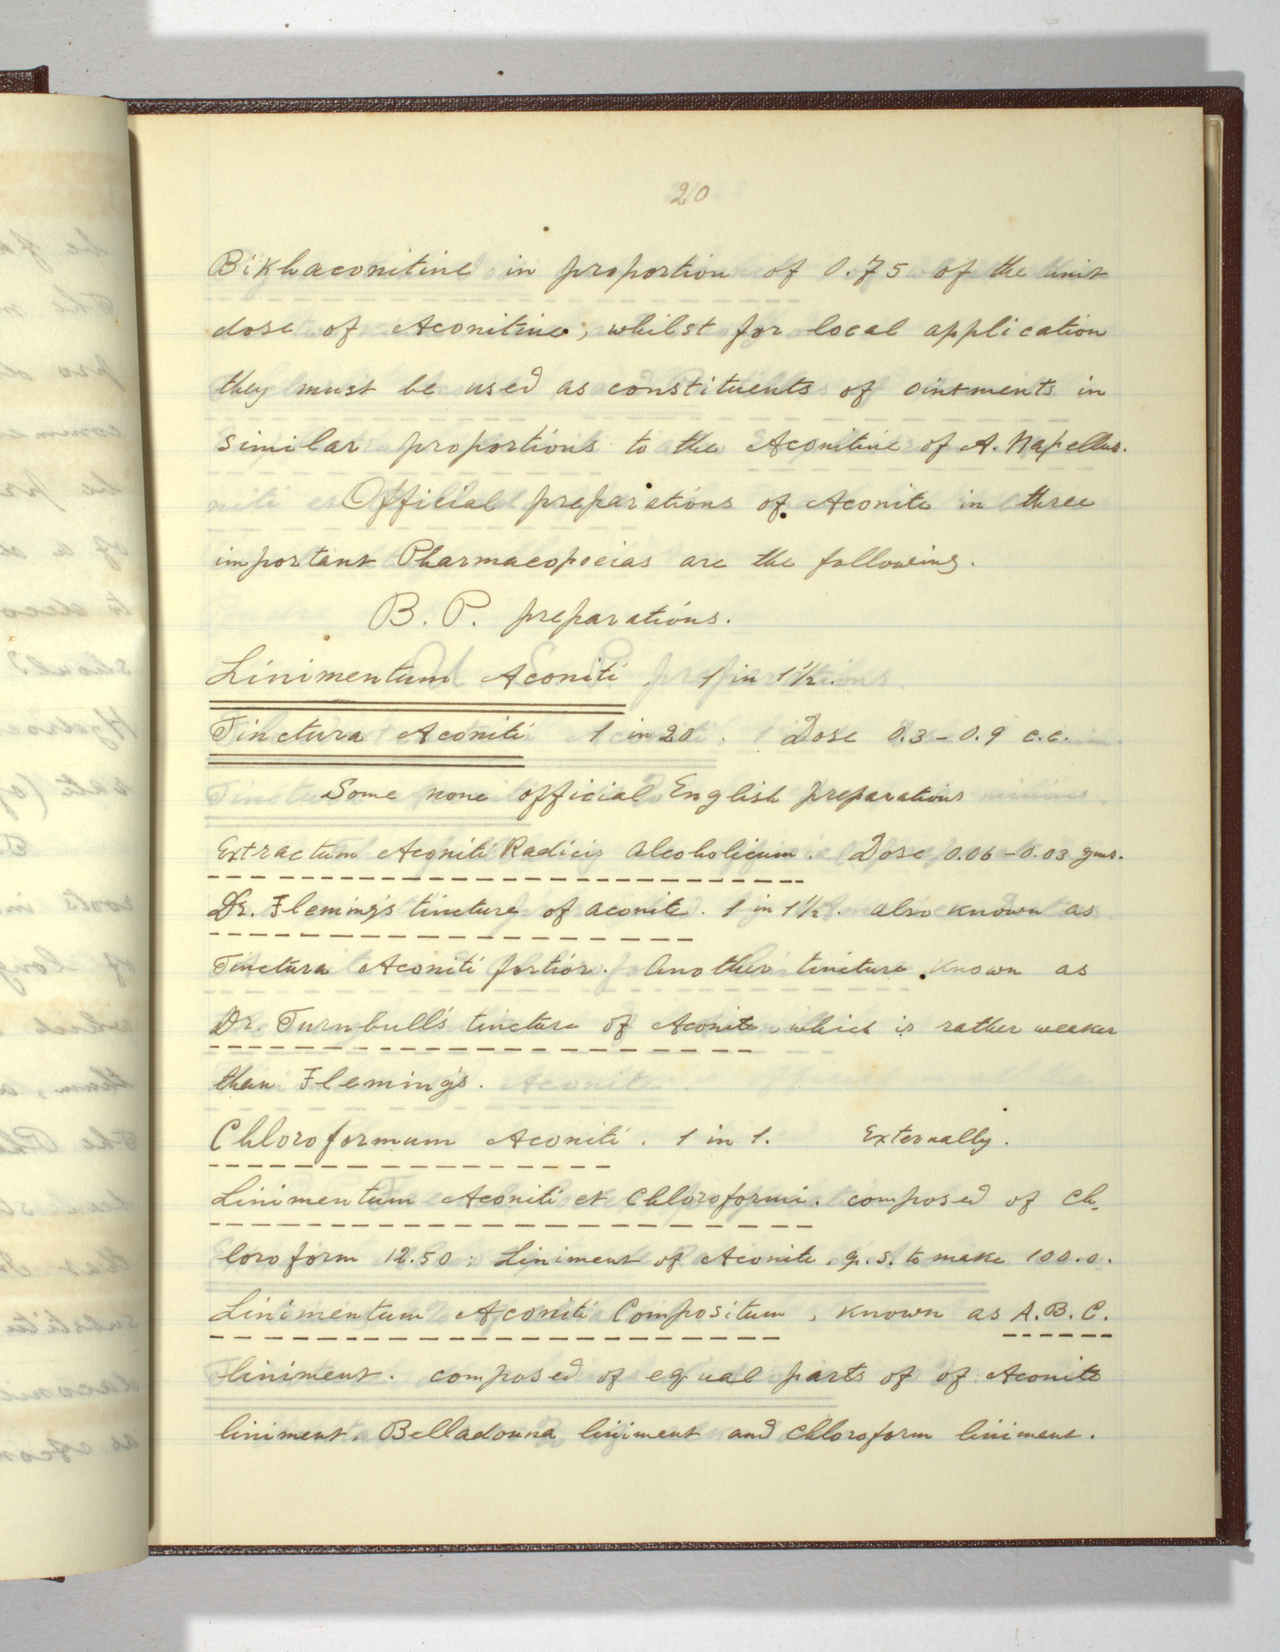 20
Bikhaconitine in proportion of 0.75 of the unit
dose of Aconitine; whilst for local application
they must be used as constituents of ointments in
similar proportions to the Aconitine of A. Napellus.
Official preparations of Aconite in three
important Pharmacopoeias are the following.
B. P. preparations.
Linimentum Aconiti. 1 in 1½.
Tinctura Aconiti 1 in 20. Dose 0.3-0.9 c.c.
Some none official English preparations
Extractum Aconiti Radicis Alcoholicum. Dose 0.06-0.03 gms.
Dr. Fleming's tincture of aconite. 1 in 1½. also known as
Tinctura Aconiti fortior. Another tincture known as
Dr. Turnbull's tincture of Aconite which is rather weaker
than Fleming's.
Chloroformum Aconiti. 1 in 1. Externally.
Linimentum Aconiti et Chloroformi. composed of Ch-
loroform 12.50; Liniment of Aconite q.s. to make 100.0.
Linimentum Aconiti Compositum, known as A.B.C.
liniment. composed of equal parts of of Aconite
liniment, Belladonna liniment and Chloroform liniment.